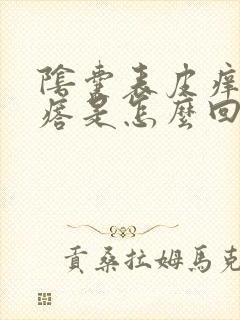 陰囊表皮痒
瘩是怎麼回
貢桑拉姆馬克